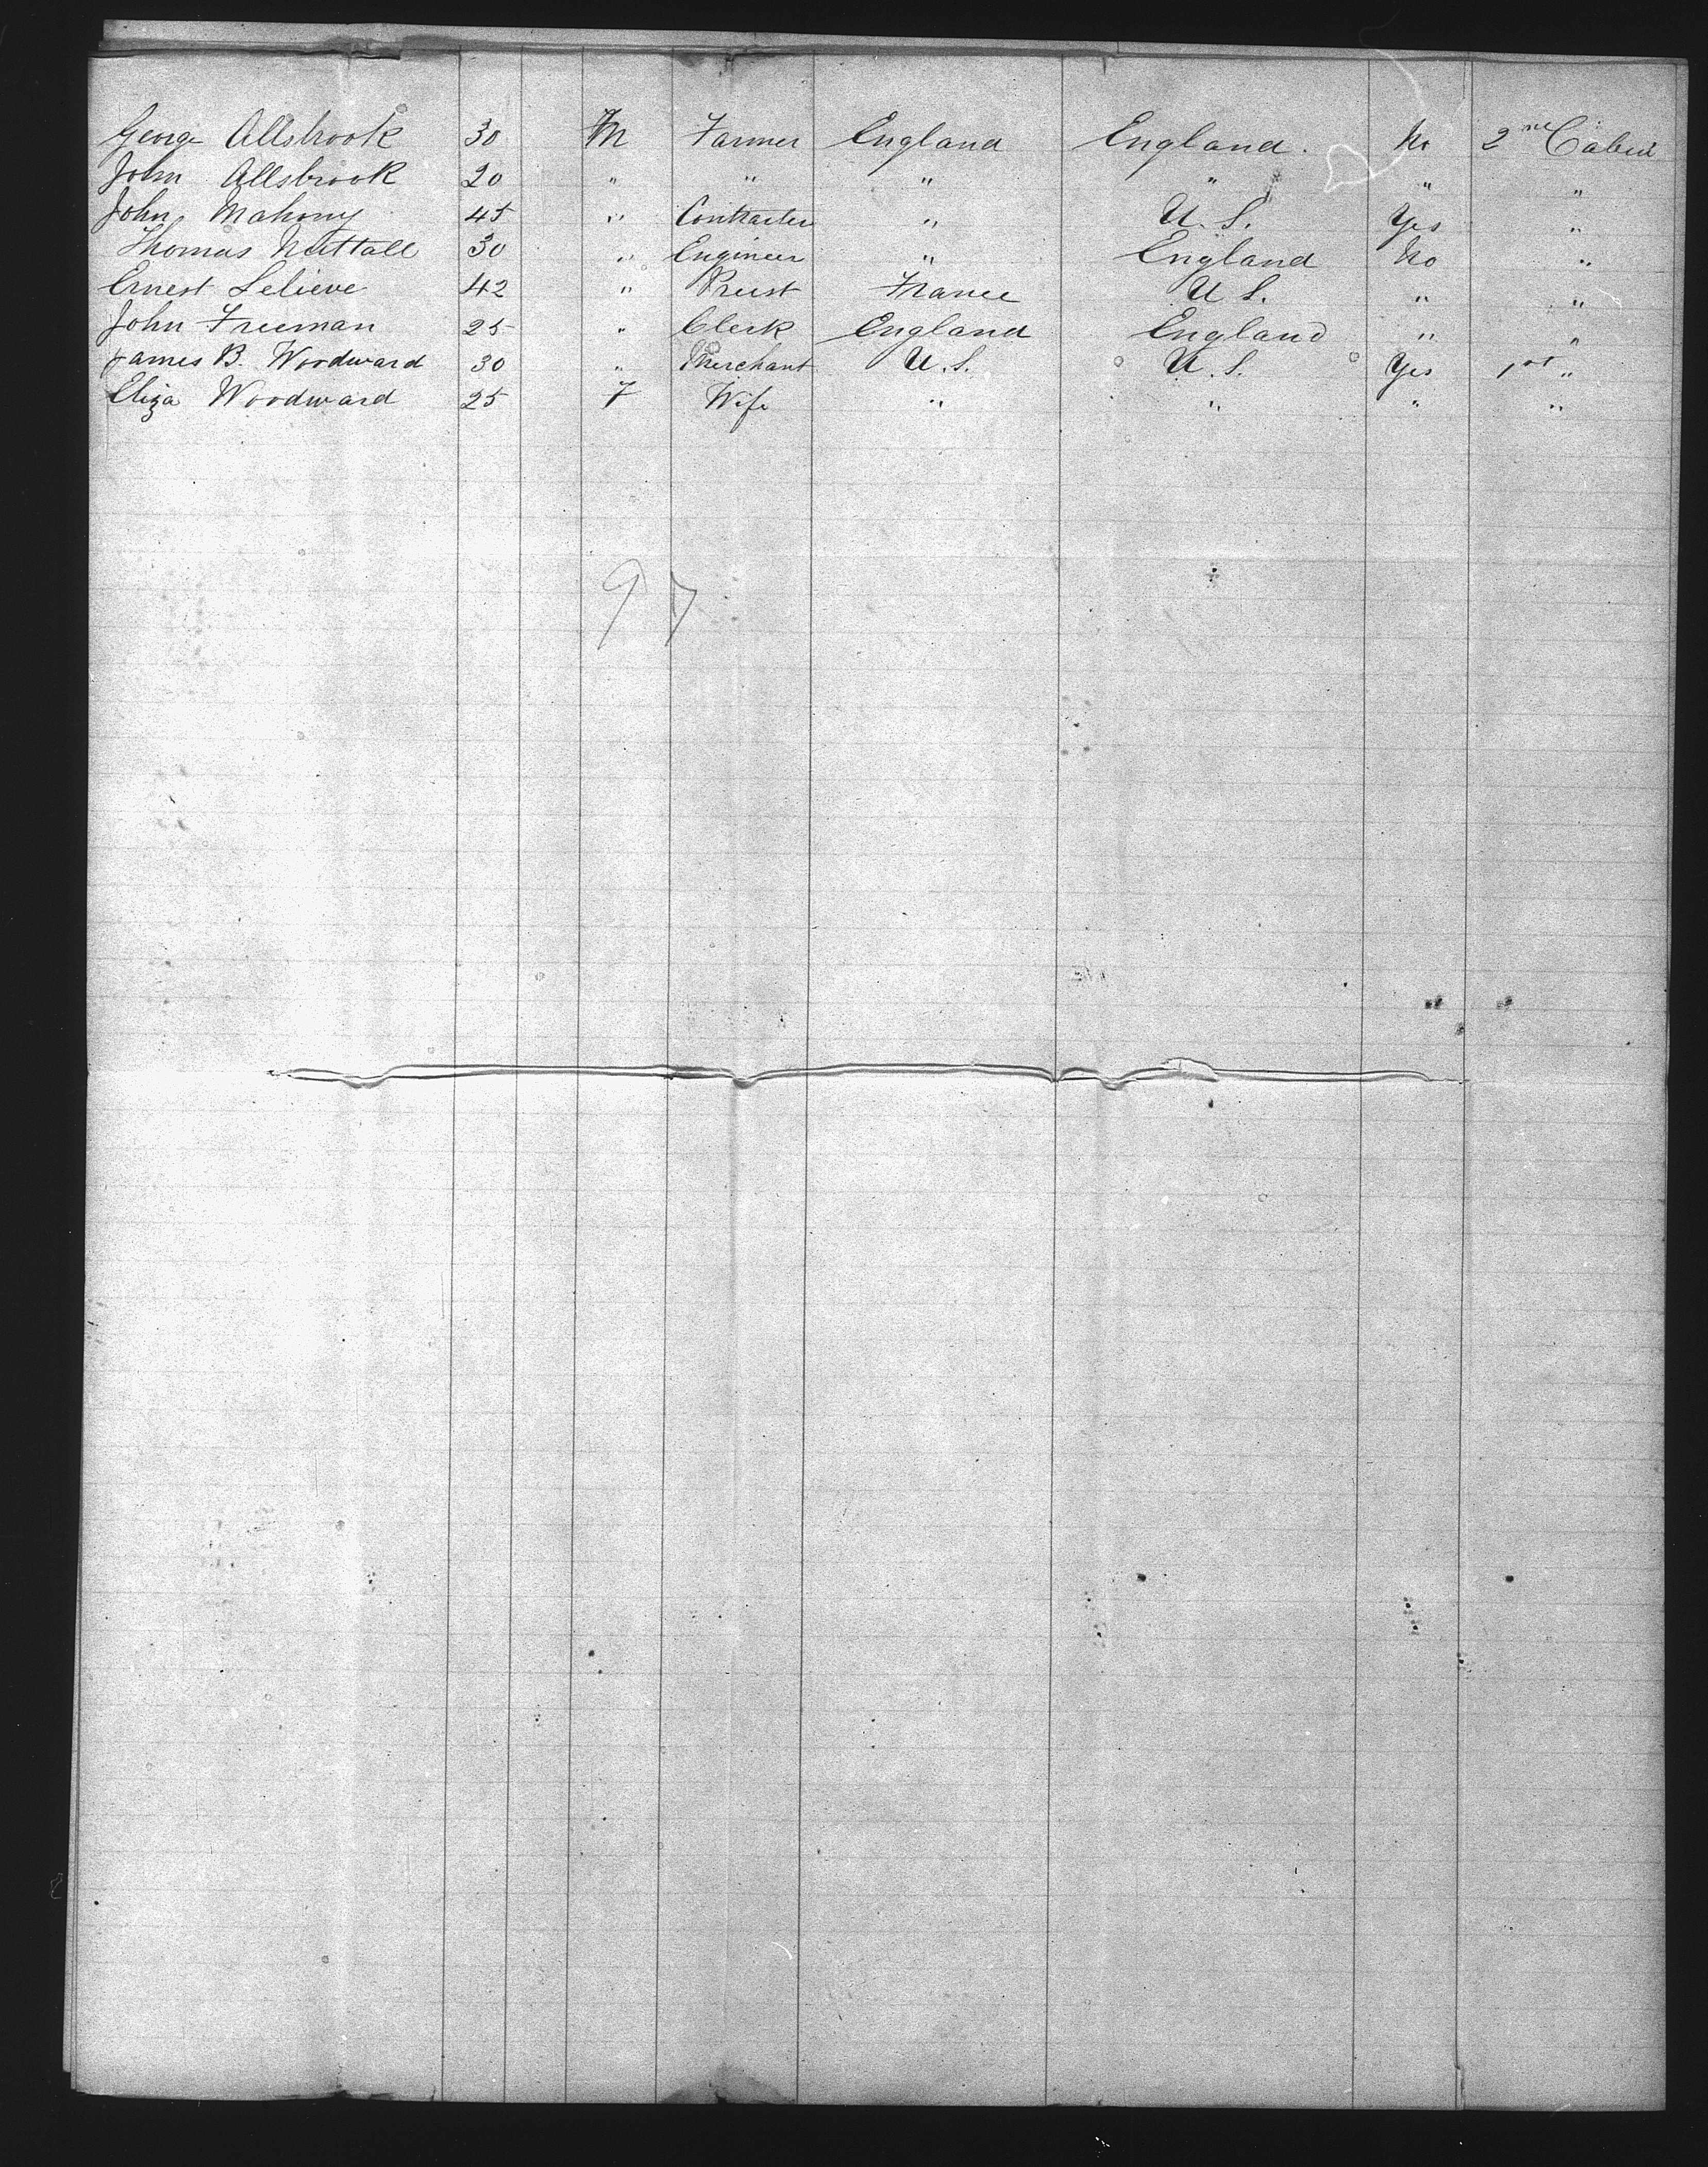 George Allsbrook 30 M Farmer England England. No 2nd Cabin
John Allsbrook 20 " " " " " "
John Mahony 45 " Contractor " U.S. Yes "
Thomas Nuttall 30 " Engineer " England No "
Ernest Lelieve 42 " Priest France U.S. " "
John Freeman 25 " Clerk England England " "
James B. Woodward 30 " Merchant U.S. U.S. Yes 1st "
Eliza Woodward 25 F Wife " " " "
97